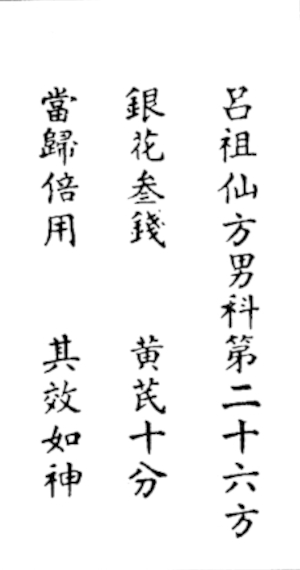 呂祖仙方男科第二十六方
銀花叁錢　黄芪十分
當歸倍用　其效如神